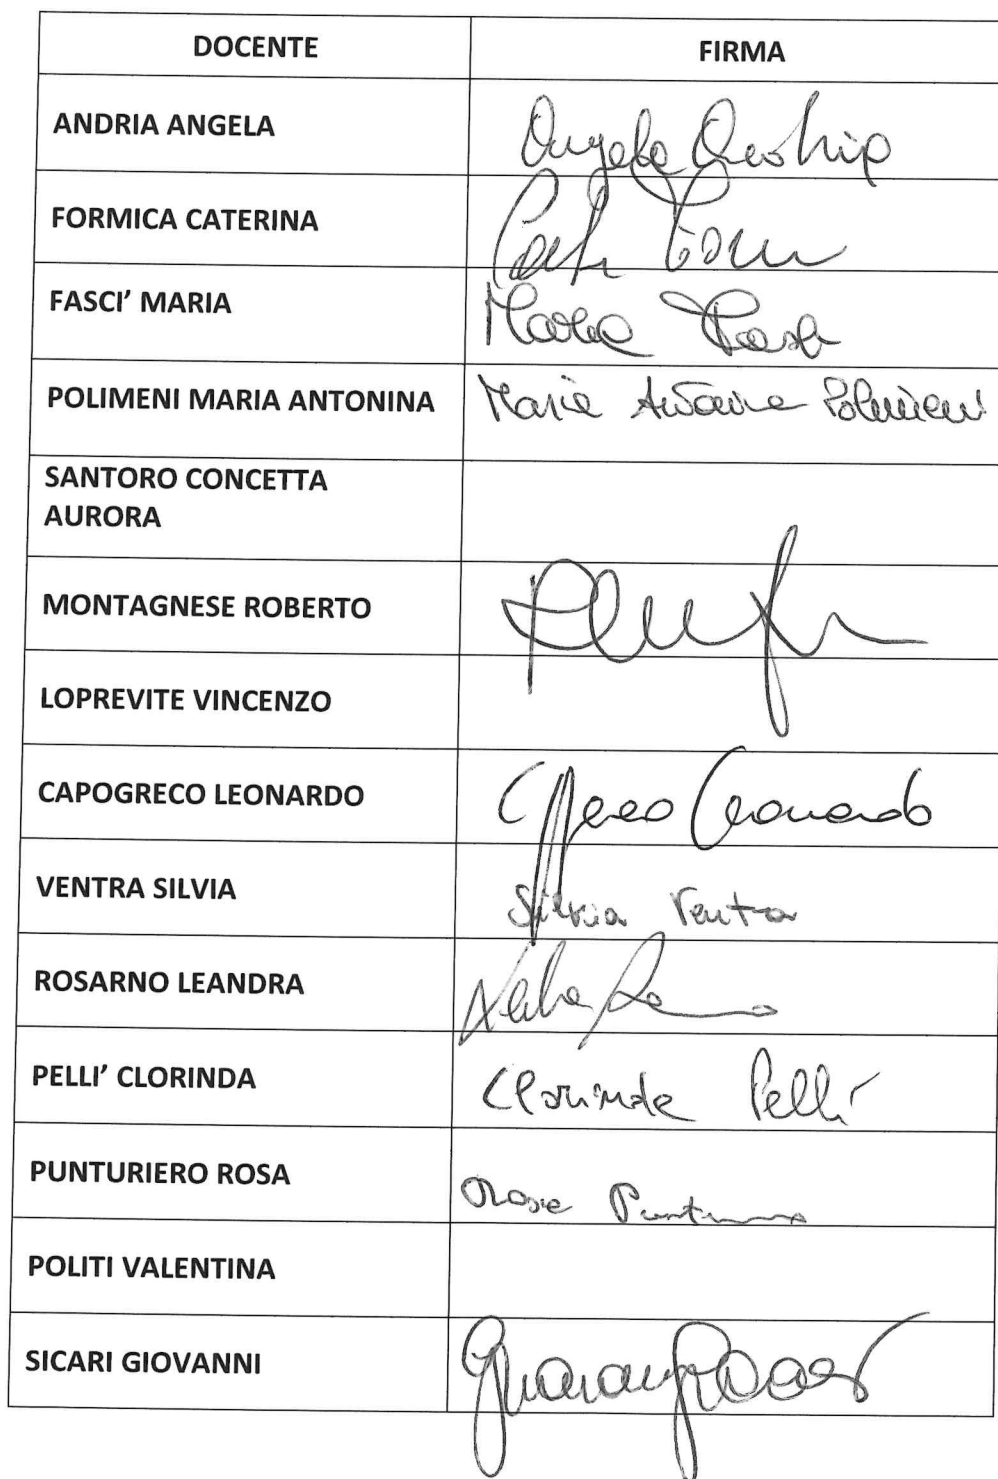 DOCENTE FIRMA
ANDRIA ANGELA Angela
FORMICA CATERINA
FASCI' MARIA Maria
POLIMENI MARIA ANTONINA Maria Antonina Polimeni
SANTORO CONCETTA
AURORA
MONTAGNESE ROBERTO
LOPREVITE VINCENZO
CAPOGRECO LEONARDO Leonardo
VENTRA SILVIA Silvia Ventra
ROSARNO LEANDRA
PELLI' CLORINDA Clorinda Pellì
PUNTURIERO ROSA Rosa
POLITI VALENTINA
SICARI GIOVANNI